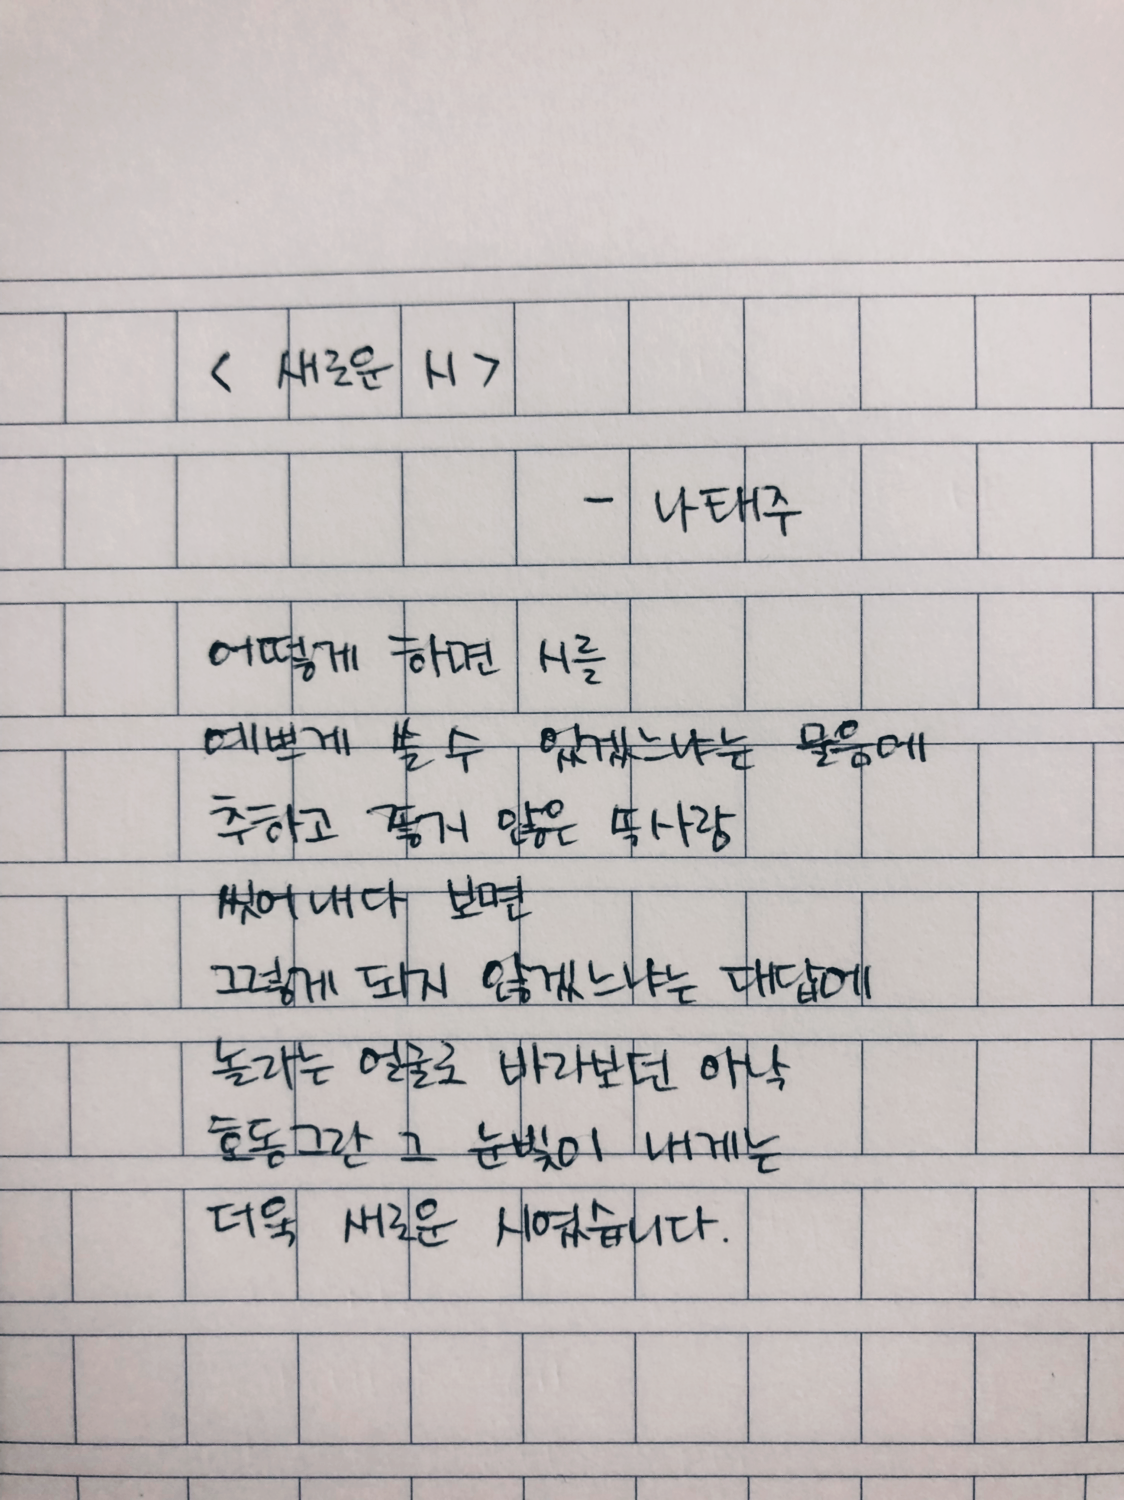 < 새로운 시 >
- 나태주
어떻게 하면 시를
예쁘게 쓸 수 있겠느냐는 물음에
추하고 좋지 않은 것 사랑
씻어내다 보면
그렇게 되지 않겠느냐는 대답에
놀라는 얼굴로 바라보던 아낙
호동그란 그 눈빛이 내게는
더욱 새로운 시였습니다.